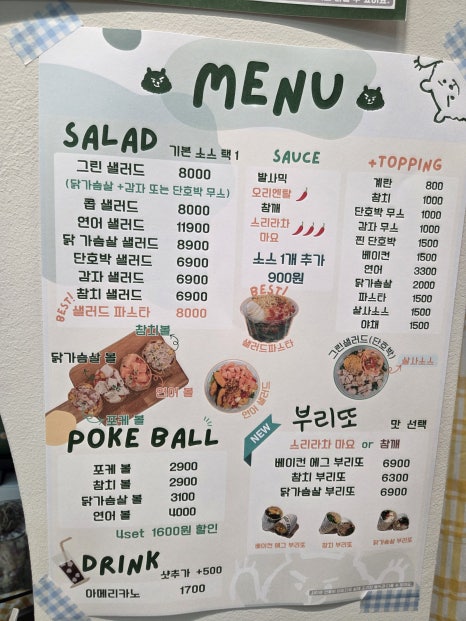 MENU
SALAD 기본 소스 택 1
그린 샐러드 8000
(닭가슴살 +감자 또는 단호박 무스)
콥 샐러드 8000
연어 샐러드 11900
닭 가슴살 샐러드 8900
단호박 샐러드 6900
감자 샐러드 6900
참치 샐러드 6900
BEST! 샐러드 파스타 8000
SAUCE
발사믹
오리엔탈
참깨
스리라차
마요
소스 1개 추가
900원
BEST!
샐러드파스타
+TOPPING
계란 800
참치 1000
단호박 무스 1000
감자 무스 1000
찐 단호박 1500
베이컨 1500
연어 3300
닭가슴살 2000
파스타 1500
살사소스 1500
야채 1500
참치볼
닭가슴살 볼
연어 볼
포케 볼
연어 샐러드
그린샐러드(단호박)
살사소스
POKE BALL
포케 볼 2900
참치 볼 2900
닭가슴살 볼 3100
연어 볼 4000
4set 1600원 할인
NEW
부리또 맛 선택
스리라차 마요 or 참깨
베이컨 에그 부리또 6900
참치 부리또 6300
닭가슴살 부리또 6900
베이컨 에그 부리또
참치 부리또
닭가슴살 부리또
DRINK 샷추가 +500
아메리카노 1700